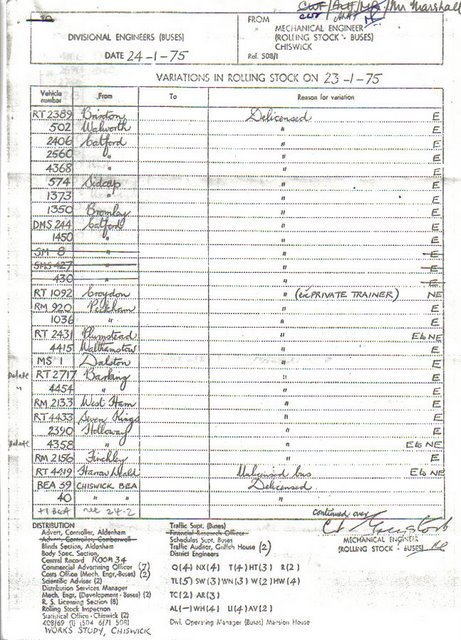 CWF / / / Mr Marshall
DIVISIONAL ENGINEERS (BUSES)
DATE 24-1-75
FROM
MECHANICAL ENGINEER
(ROLLING STOCK - BUSES)
CHISWICK
Ref. 508/1
VARIATIONS IN ROLLING STOCK ON 23-1-75
Vehicle number From To Reason for variation
RT 2389 Brixton Delicensed E
502 Walworth " E
2406 Catford " E
2560 " " E
4368 " " E
574 Sidcup " E
1373 " " E
1350 Bromley " E
DMS 244 Catford " E
1450 " " E
SM 8 " " E
SMS 427 " " E
430 " " E
RT 1092 Croydon " (ex PRIVATE TRAINER) NE
RM 920 Peckham " E
1036 " " E
RT 2431 Plumstead " E to NE
4415 Walthamstow " E
MS 1 Dalston " E
Delete RT 2717 Barking " E
" 4454 " " E
RM 2133 West Ham " E
RT 4433 Seven Kings " E
2390 Holloway " E
Delete 4358 " " E to NE
RM 2156 Finchley " E
RT 4419 Harrow Weald Unlicensed bus E to NE
BEA 39 CHISWICK BEA Delicensed
40 " " "
+1 BEA see 24-2
continued over
MECHANICAL ENGINEER
(ROLLING STOCK - BUSES)
DISTRIBUTION
Advert. Controller, Aldenham
Advert. Controller, Camberwell
Blinds Section, Aldenham
Body Spec. Section,
Central Record ROOM 34
Commercial Advertising Officer (7)
Costs Office (Mech. Engr.-Buses) (2)
Scientific Adviser (2)
Distribution Services Manager
Mech. Engr. (Development - Buses) (2)
R. S. Licensing Section (8)
Rolling Stock Inspection
Statistical Office - Chiswick (2)
408/69 (1) (504 6/71 508)
WORKS STUDY, CHISWICK
Traffic Supt. (Buses)
Financial Research Officer
Schedules Supt. Buses
Traffic Auditor, Griffith House (2)
District Engineers
Q(4) NX(4) T(4) HT(3) R(2)
TL(5) SW(3) WN(3) W(2) HW(4)
TC(2) AR(3)
AL(-) WH(4) U(4) AV(2)
Divl. Operating Manager (Buses) Mansion House